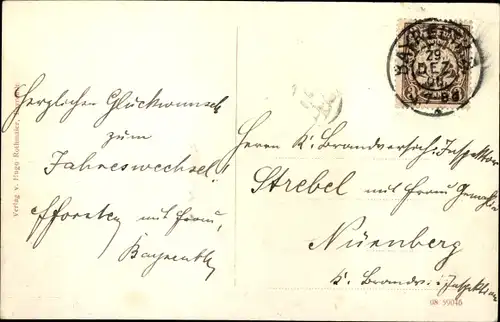 Herzlichen Glückwunsch
zum
Jahreswechsel!
mit Frau,
Bayreuth
Verlag v. Hugo Rothmaier,
BAYREUTH
29
DEZ
Herrn K. Brandversich: Inspektor
Strebel mit Frau Gemahlin
Nürnberg
K. Brandv: Inspektion
08 39046